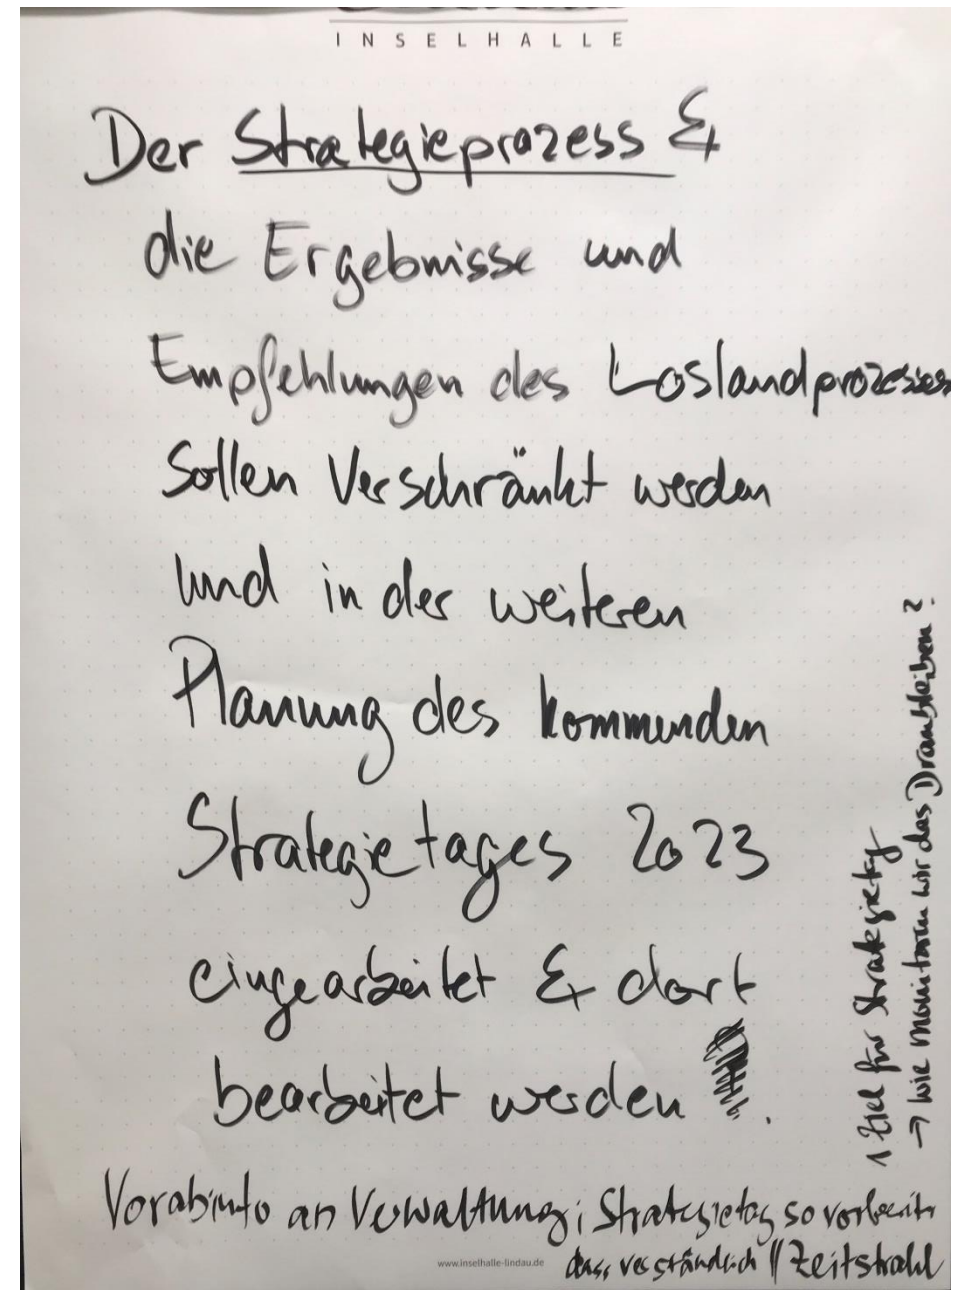 INSELHALLE
Der Strategieprozess &
die Ergebnisse und
Empfehlungen des Loslandprozesses
sollen verschränkt werden
und in der weiteren
Planung des kommenden
Strategietages 2023
eingearbeitet & dort
bearbeitet werden .
1 Ziel für Strategietag
→ Wie monitoren wir das Dranbleiben?
Vorabinfo an Verwaltung; Strategietag so vorbereit
www.inselhalle-lindau.de
dass verständlich // Zeitstrahl